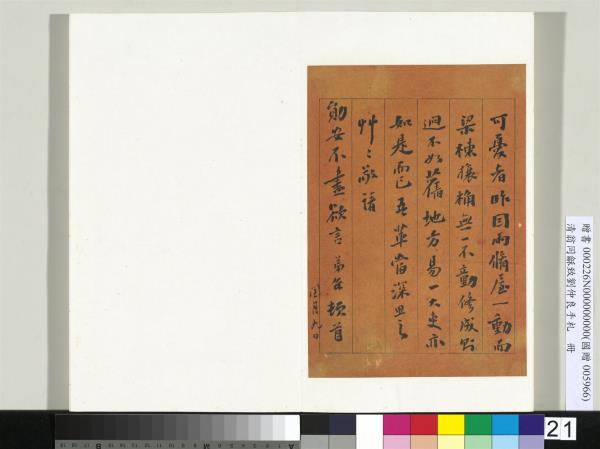 可憂者昨因雨脩屋一動而
梁棟榱桷無一不動修成則
迥不如舊地方易一大吏亦
如是而已吾輩當深思之
艸〻敬請
勛安不盡欲言 弟 頓首
九日
贈書 000226N000000000(國贈 005966)
清翁同龢致劉仲良手札 冊
21